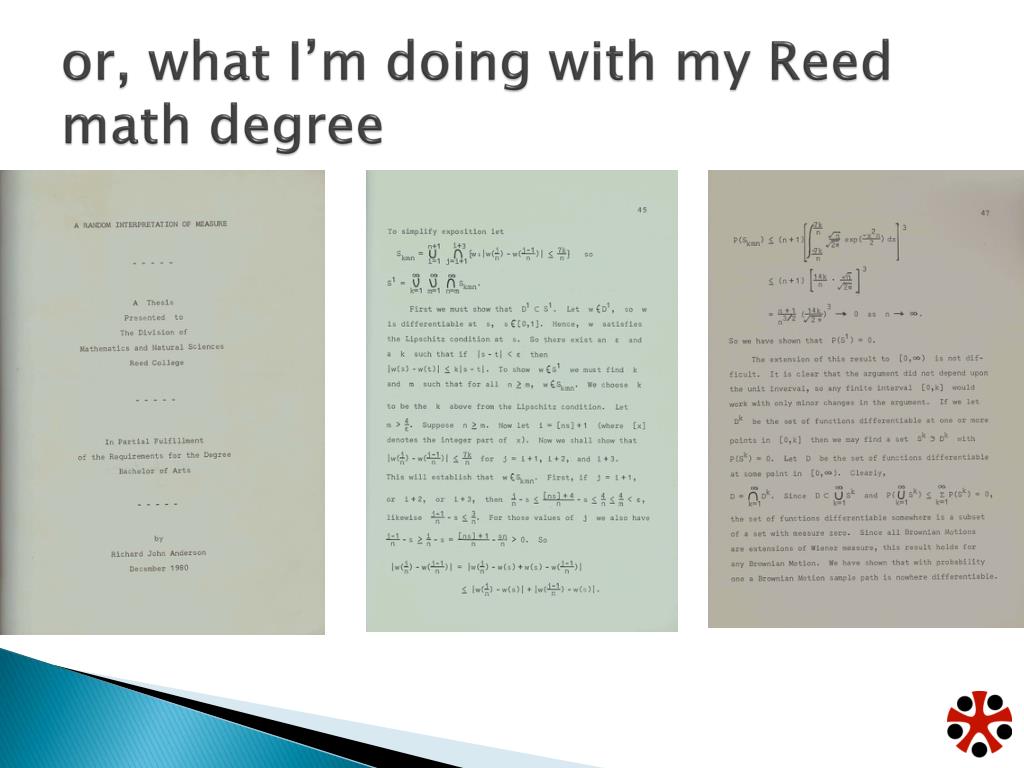 or, what I'm doing with my Reed
math degree
A RANDOM INTERPRETATION OF MEASURE
- - - - -
A Thesis
Presented to
The Division of
Mathematics and Natural Sciences
Reed College
- - - - -
In Partial Fulfillment
of the Requirements for the Degree
Bachelor of Arts
- - - - -
by
Richard John Anderson
December 1980
45
To simplify exposition let
S_kmn = ⋃_{i=1}^{n+1} ⋂_{j=i+1}^{i+3} [w:|w(j/n) - w((j-1)/n)| ≤ 7k/n] so
S¹ = ⋃_{k=1}^∞ ⋃_{m=1}^∞ ⋂_{n=m}^∞ S_kmn.
First we must show that D¹ ⊂ S¹. Let w∈D¹, so w
is differentiable at s, s∈[0,1]. Hence, w satisfies
the Lipschitz condition at s. So there exist an ε and
a k such that if |s - t| < ε then
|w(s) - w(t)| ≤ k|s - t|. To show w∈S¹ we must find k
and m such that for all n ≥ m, w∈S_kmn. We choose k
to be the k above from the Lipschitz condition. Let
m > 4/ε. Suppose n ≥ m. Now let i = [ns]+1 (where [x]
denotes the integer part of x). Now we shall show that
|w(j/n) - w((j-1)/n)| ≤ 7k/n for j = i+1, i+2, and i+3.
This will establish that w∈S_kmn. First, if j = i+1,
or i+2, or i+3, then j/n - s ≤ ([ns]+4)/n - s ≤ 4/n ≤ 4/m < ε,
likewise (j-1)/n - s ≤ 3/n. For those values of j we also have
(j-1)/n - s ≥ i/n - s = ([ns]+1)/n - sn/n > 0. So
|w(j/n) - w((j-1)/n)| = |w(j/n) - w(s) + w(s) - w((j-1)/n)|
≤ |w(j/n) - w(s)| + |w((j-1)/n) - w(s)|.
47
≤ (n+1) [14k/n · √n/√2π]³
→ 0 as n → ∞.
So we have shown that P(S¹) = 0.
The extension of this result to [0,∞) is not dif-
ficult. It is clear that the argument did not depend upon
the unit inverval, so any finite interval [0,k] would
work with only minor changes in the argument. If we let
D^k be the set of functions differentiable at one or more
points in [0,k] then we may find a set S^k ⊃ D^k with
P(S^k) = 0. Let D be the set of functions differentiable
at some point in [0,∞). Clearly,
D = ⋂_{k=1}^∞ D^k. Since D ⊂ ⋃_{k=1}^∞ S^k and P(⋃_{k=1}^∞ S^k) ≤ Σ_{k=1}^∞ P(S^k) = 0,
the set of functions differentiable somewhere is a subset
of a set with measure zero. Since all Brownian Motions
are extensions of Wiener measure, this result holds for
any Brownian Motion. We have shown that with probability
one a Brownian Motion sample path is nowhere differentiable.